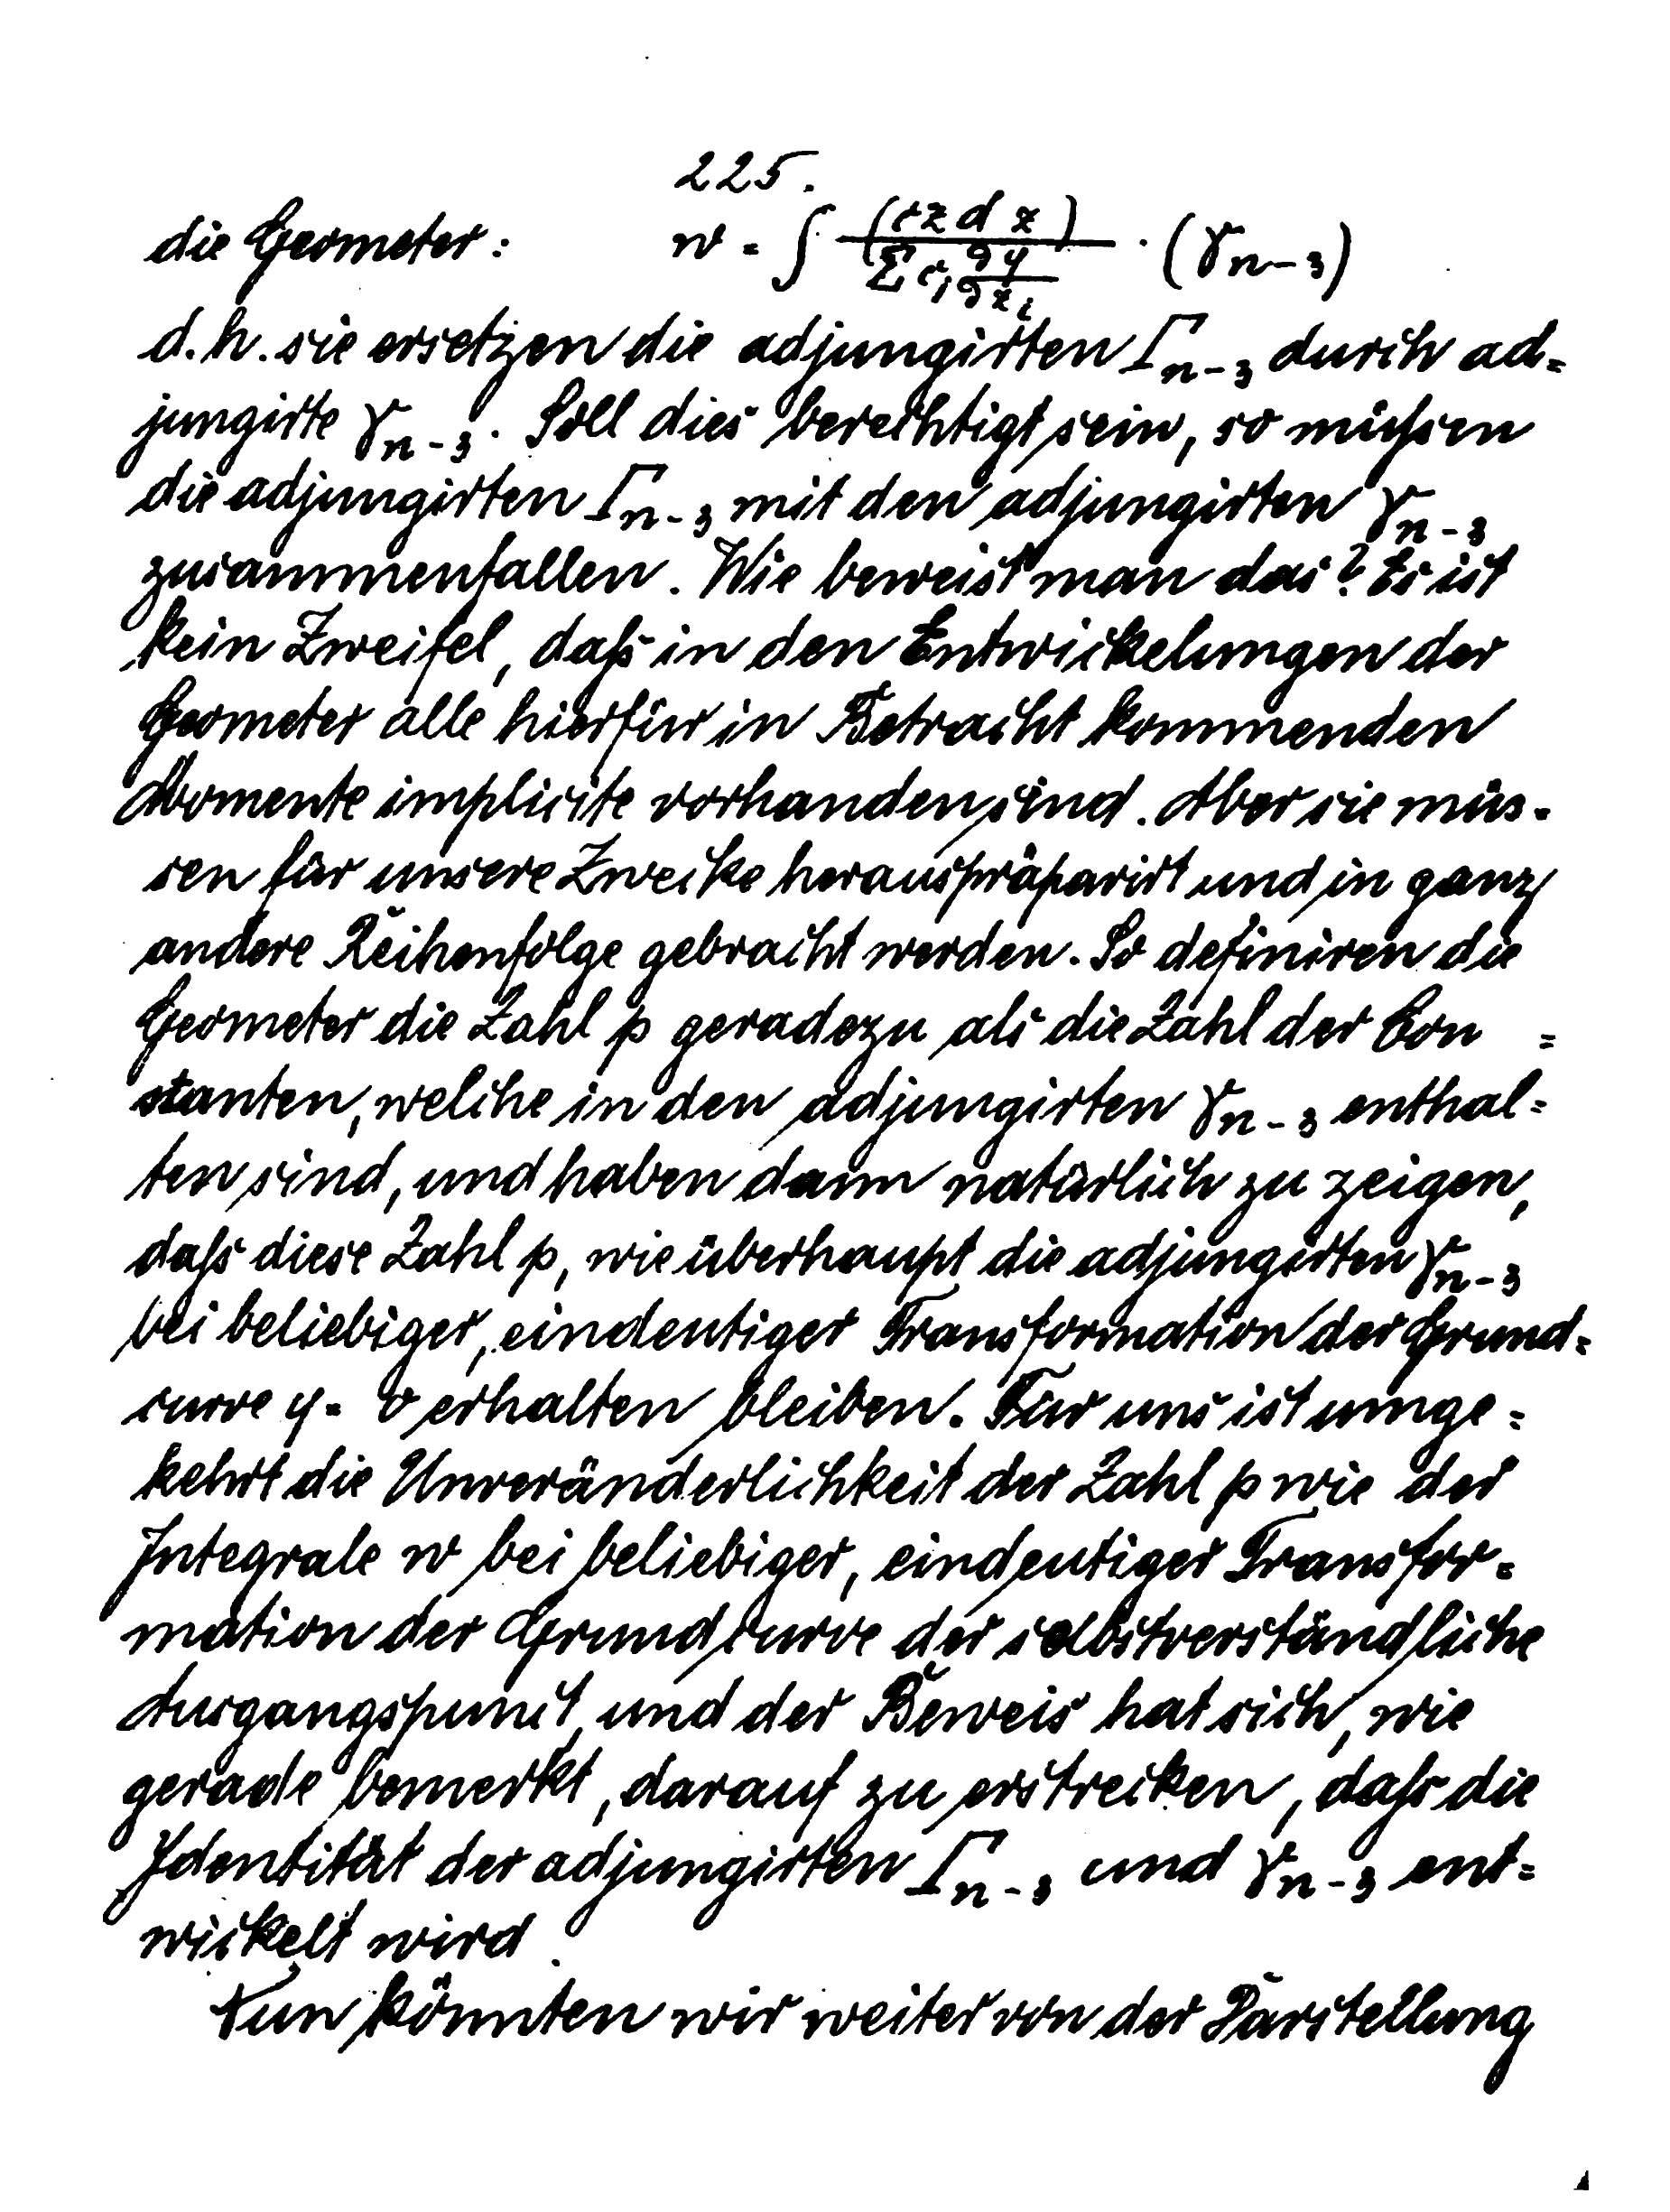 225.
die Geometer: w = ∫ (czdz) / (Σ c_i ∂φ/∂z_i) · (γ_{n-3})
d.h. sie ersetzen die adjungirten Γ_{n-3} durch ad=
jungirte γ_{n-3}. Soll dies berechtigt sein, so müssen
die adjungirten Γ_{n-3} mit den adjungirten γ_{n-3}
zusammenfallen. Wie beweist man das? Es ist
kein Zweifel, daß in den Entwickelungen der
Geometer alle hierfür in Betracht kommenden
Momente implicite vorhanden sind. Aber sie müs=
sen für unsere Zwecke herauspräparirt und in ganz
andere Reihenfolge gebracht werden. So definiren die
Geometer die Zahl p geradezu als die Zahl der Con=
stanten, welche in den adjungirten γ_{n-3} enthal=
ten sind, und haben dann natürlich zu zeigen,
daß diese Zahl p, wie überhaupt die adjungirten γ_{n-3}
bei beliebiger, eindeutiger Transformation der Grund=
curve φ = 0 erhalten bleiben. Für uns ist umge=
kehrt die Unveränderlichkeit der Zahl p wie der
Integrale w bei beliebiger, eindeutiger Transfor=
mation der Grundcurve der selbstverständliche
Ausgangspunct, und der Beweis hat sich, wie
gerade bemerkt, darauf zu erstrecken, daß die
Identität der adjungirten Γ_{n-3} und γ_{n-3} ent=
wickelt wird.
Nun könnten wir weiter von der Darstellung